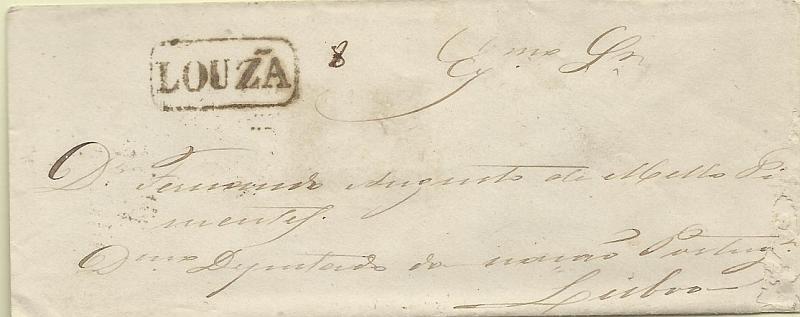 LOUZÃ
8
Exmo Sr.
Dr Fernando Augusto de Mello Pi
mentel.
Dmo Deputado da nação Portugª.
Lisboa